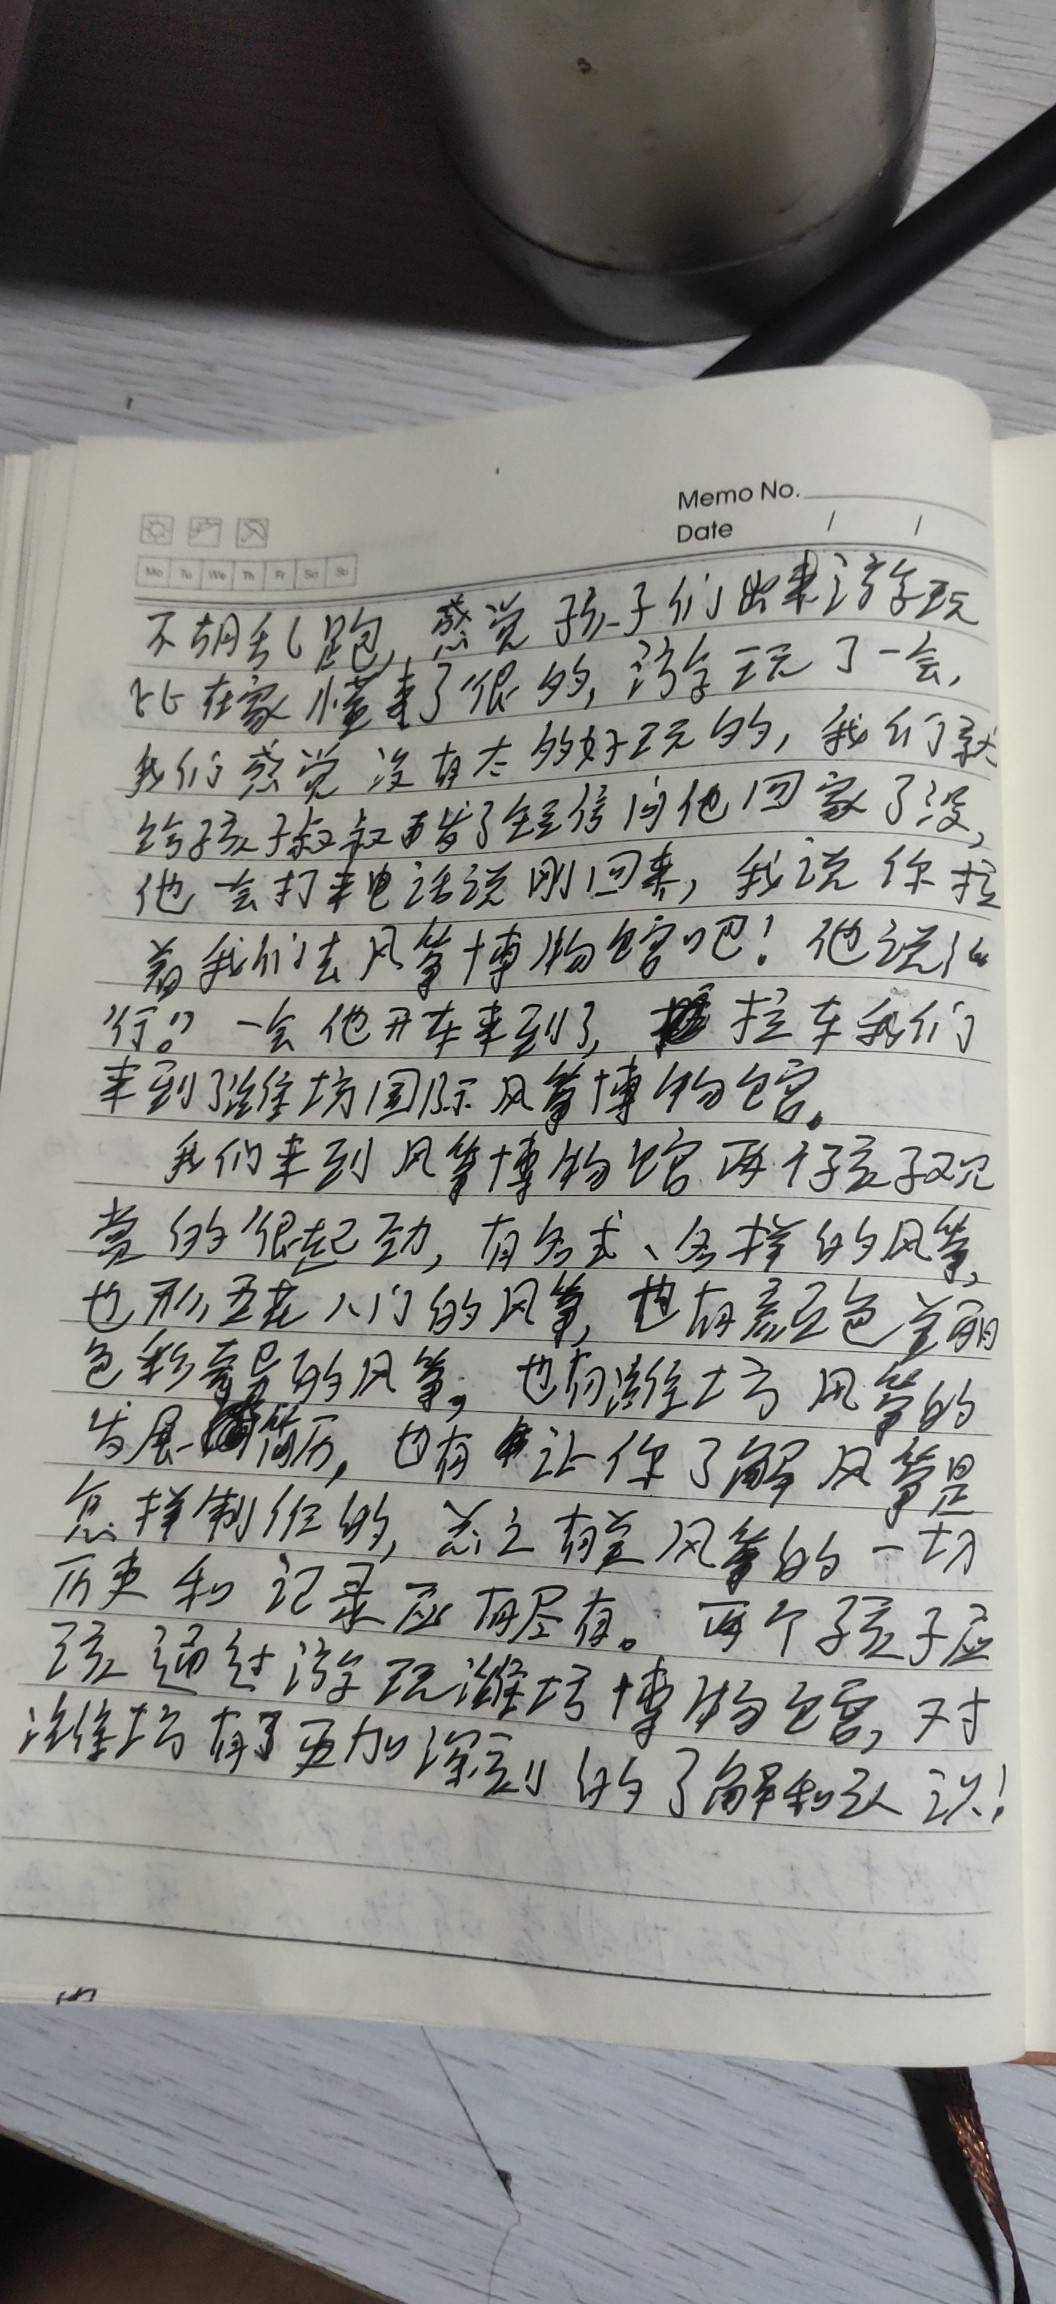 Memo No.
Date / /
Mo Tu We Th Fr Sa Su
不胡乱跑, 感觉孩子们出来游玩
比在家懂事了很多, 游玩了一会,
我们感觉没有太多好玩的, 我们就
给孩子叔叔发了短信问他回家了没,
他打来电话说刚回来, 我说你拉
着我们去风筝博物馆吧! 他说
"行。" 一会他开车来到了, 拉车我们
来到了潍坊国际风筝博物馆。
我们来到风筝博物馆两个孩子观
赏的很起劲, 有各式、各样的风筝,
也有五花八门的风筝, 也有颜色美丽
色彩奇异的风筝。也有潍坊风筝的
发展简历, 也有让你了解风筝是
怎样制作的, 总之有关风筝的一切
历史和记录应有尽有。两个孩子应
该通过游玩潍坊博物馆, 对
潍坊有了更加深刻的了解和认识!